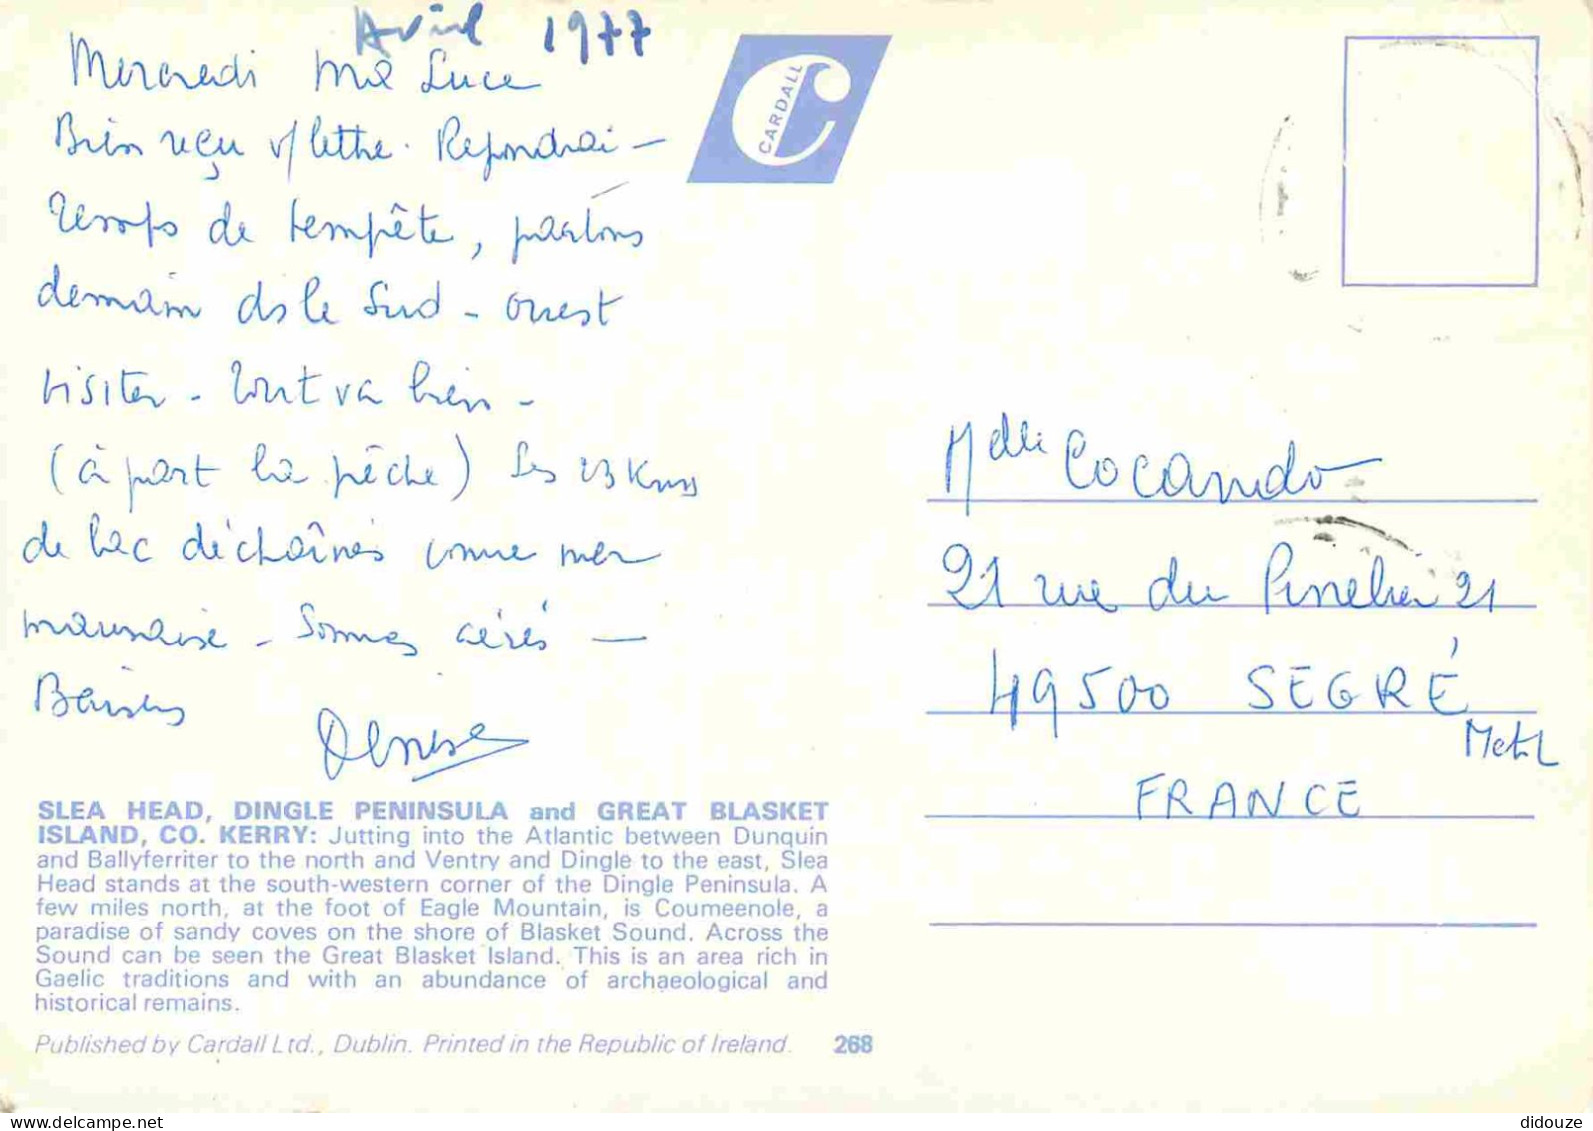 Avril 1977
Mercredi Ma Luce
Bien reçu v/ lettre. Repondrai —
Temps de tempête, partons
demain ds le Sud - Ouest
visiter - Tout va bien -
(à part la pêche) Les 23 Kms
de lac déchaînés comme mer
mauvaise - Sommes aérés —
Baisers
Denise
CARDALL
Melle Cocando
21 rue du 21
49500 SEGRÉ
FRANCE
SLEA HEAD, DINGLE PENINSULA and GREAT BLASKET
ISLAND, CO. KERRY: Jutting into the Atlantic between Dunquin
and Ballyferriter to the north and Ventry and Dingle to the east, Slea
Head stands at the south-western corner of the Dingle Peninsula. A
few miles north, at the foot of Eagle Mountain, is Coumeenole, a
paradise of sandy coves on the shore of Blasket Sound. Across the
Sound can be seen the Great Blasket Island. This is an area rich in
Gaelic traditions and with an abundance of archaeological and
historical remains.
Published by Cardall Ltd., Dublin. Printed in the Republic of Ireland. 268
didouze